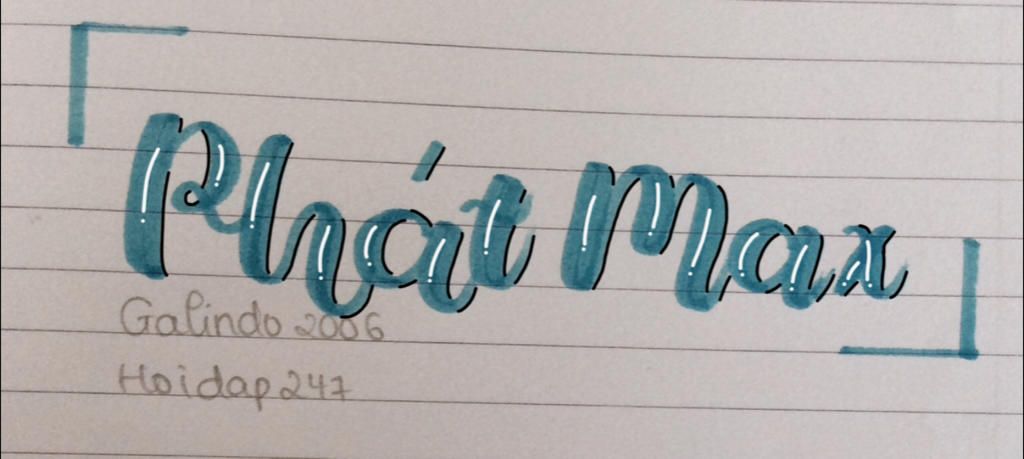 Phát Max
Galindo 2006
Hoidap 247